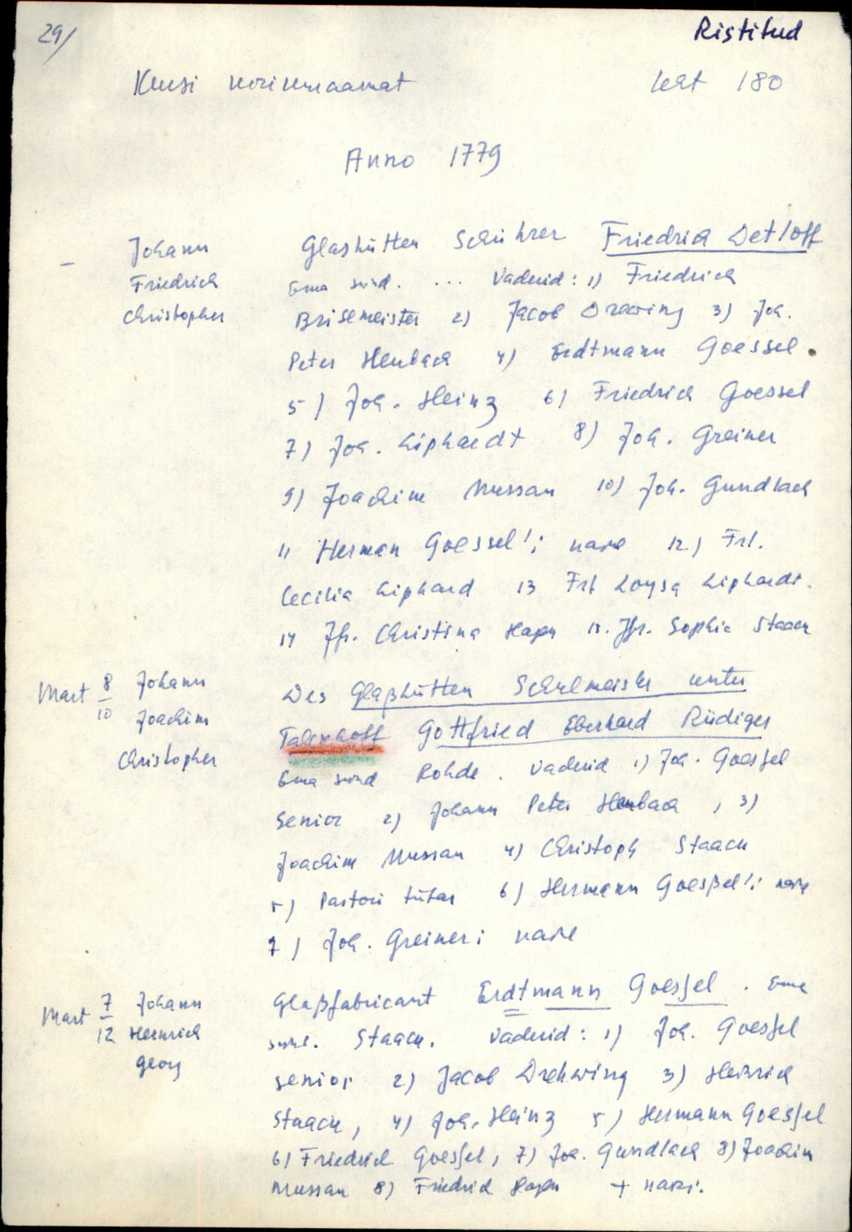 29/
Ristitud
Kuusi
leht 180
Anno 1779
Johann Glashütten Schührer Friedrich Detloff
Friedrich Ema sünd. ... Vaderid: 1) Friedrich
Christopher 2) Jacob 3) Joh.
Peter Heubach 4) Erdtmann Goessel.
5) Joh. Heinz 6) Friedrich Goessel
7) Joh. Liphardt 8) Joh. Greiner
9) Joachim Mussan 10) Joh. Gundlach
11 Herman Goessel'i naine 12) Frl.
Cecilia Liphard 13 Frl Loysa Liphardt.
14 Jfr. Christina Hagn 15. Jfr. Sophie Staach
Mart 8/10 Johann Des Glaßhütten Schulmeister unter
Joachim Gottfried Eberhard Rüdiger
Christopher Ema sünd Rohde. Vaderid 1) Joh. Goessel
Senior 2) Johann Peter Heubach, 3)
Joachim Mussan 4) Christoph Staach
5) Pastori tütar 6) Hermann Goeßel'i naine
7) Joh. Greineri naine
Mart 7/12 Johann Glaßfabricant Erdtmann Goessel. Ema
Heinrich sünd. Staach. Vaderid: 1) Joh. Goessel
Georg senior 2) Jacob Drehwing 3) Heinrich
Staach, 4) Joh. Heinz 5) Hermann Goessel
6) Friedrich Goessel, 7) Joh. Gundlach 8) Joachim
Mussan 8) Friedrich Hagn + naisi.